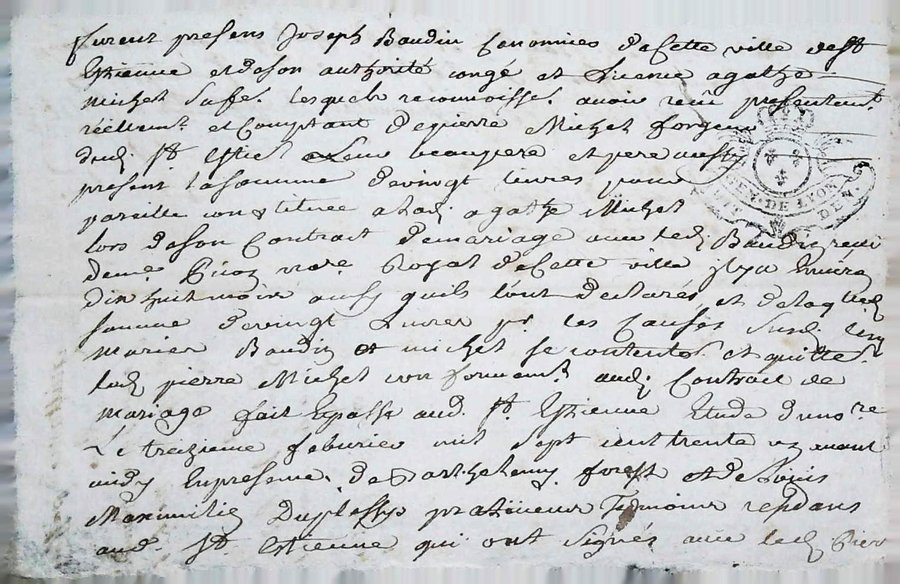 furent presens Joseph Baudin Canonnier de cette ville de St
Estienne et de son authorité congé et licence agathe
michel sa fe. lesquels reconnoisset. avoir reçu presentement
réelleemt. et comptant de pierre Michel forgeur
dud. St Estiene Leur beaupere et pere aussy
present la somme de vingt livres pour
pareille constituée a lad. agathe Michel
lors de son Contrat de mariage avec led. Baudin reçu
de me. notre. Royal de cette ville il y a
dix huit mois ainsy quils l'ont declarés et de laquelle
somme de vingt Livres pr. les Causes Susd. les
mariez Baudin et michel se contentet. et quittet.
led. pierre Michel conformemt. aud. Contrat de
mariage fait et passé aud. St. Estienne Etude du nore.
Le treizieme febvrier mil sept cent trente un avant
midy En presence de Barthelemy forest et de Loüis
Maximilien Duplessy praticiens Temoins residans
aud. St. Estienne qui ont signés avec led. Pier
GEN. DE LYON
DEN.